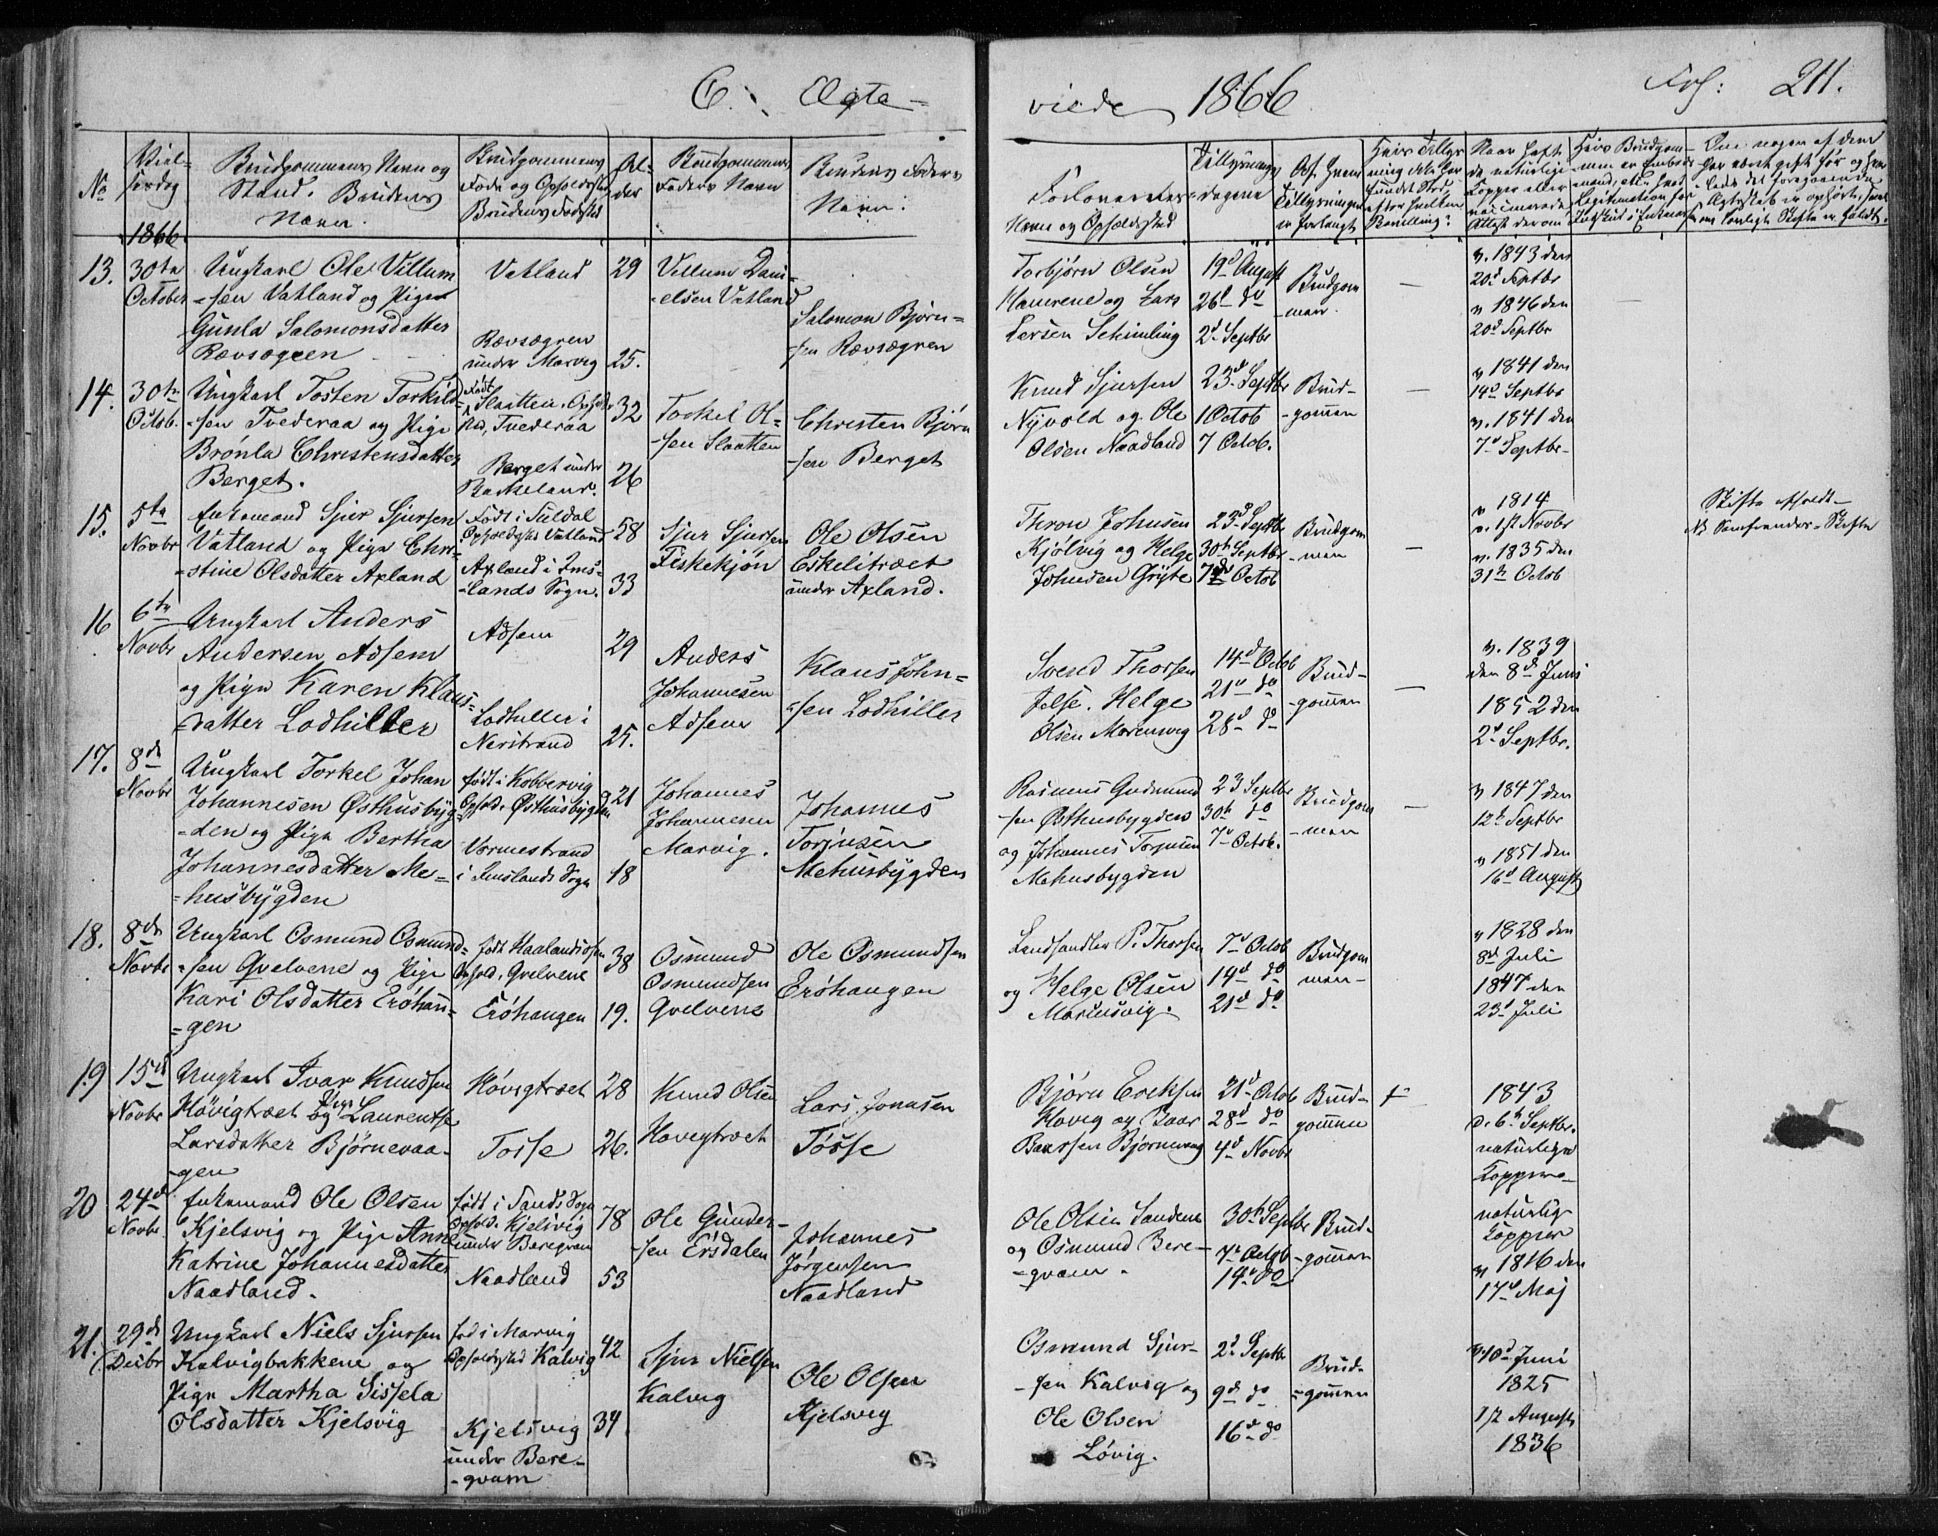 C. Ægte-
viede 1866
Fol: 211.
No
Viel-
sesdag
1866
Brudgommens Navn og
Stand. Brudens
Navn.
Brudgommens
Føde og Opholdssted
Brudens Fødested
Al-
der
Brudgommens
Faders Navn
Brudens Faders
Navn.
Forlovernes
Navn og Opholdssted
Tillysnings-
dagene
Af Hvem
Tillysningen
er forlangt
13.
30te
October
Ungkarl Ole Villum
-sen Vatland og Pige
Gunla Salomonsdatter
Rævsøgren
Vatland
Rævsøgren
under Marvig
29
25.
Villum Dani-
-elsen Vatland
Salomon Bjørn-
-sen Rævsøgren
Torbjørn Olsen
og Lars
Larsen Schimling
19d August
26d do
2d Septbr
Brudgom
-men.
v. 1843 den
20d Septbr
v 1846 den
20d Septbr
14.
30te
Octob.
Ungkarl Tosten Torkild-
-sen Tvederaa og Pige
Brønla Christensdatter
Berget.
Født
Slaatten, Opholds
sted, Tvederaa
Berget under
Backeland.
32
26
Torkel Ol-
-sen Slaatten
Christen Bjørn
-sen Berget
Knud Sjursen
Nyvold og Ole
Olsen Naadland
23d Septbr
1 Octob
7 Octob.
Brud-
-gommen
v 1841 den
14d Septbr
v. 1841 den
7d Septbr
15.
5te
Novbr
Enkemand Sjur Sjursen
Vatland og Pige Chri-
-stine Olsdatter Axland
Født i Suldal
Opholdssted Vatland
Axland i Ims-
-lands Sogn.
58
33
Sjur Sjursen
Fiskekjøn
Ole Olsen
Eskelitræet
under Axland.
Thron Johnsen
Kjølvig og Helge
Johnsen Gryte
23d Septbr
30te Septbr
7de Octob
Brudgom
-men
v 1814
v. 1st Novbr
v. 1835 den
31te Octob
Skifte afholdt
N Samfrænder-Skifte
16
6te
Novbr
Ungkarl Anders
Andersen Adsem
og Pige Karen Klaus-
-datter Lodhiller
Adsem
Lodhiller i
Nerstrand
29
25.
Anders
Johannesen
Adsem
Klaus John-
-sen Lodhiller
Svend Thorsen
Jelse. Helge
Olsen Marensvig
14d Octob
21d do
28d do
Brud-
-gommen
v. 1839
den 8d Juni
1852 den
2d Septbr.
17.
8de
Novbr
Ungkarl Torkel Johan
Johannesen Østhusbyg-
-den og Pige Bertha
Johannesdatter Me-
-husbygden
født i Kobbervig
Ophold. Østhusbygden
Vormestrand
i Imslands Sogn
21
18
Johannes
Johannesen
Marvig.
Johannes
Torjusen
Mehusbygden
Rasmus Gudmund
-sen Østhusbygden
og Johannes Torjusen
Mehusbygden
23 Septbr
30te do
7d Octob.
Brudgom
-men
v 1847 den
12te Septbr
v 1851 den
16d August
18.
8de
Novbr
Ungkarl Osmund Osmund-
-sen Qvelvene og Pige
Kari Olsdatter Erøhau-
-gen
født Haalandsosen
Ophold, Qvelvene
Erøhaugen
38
19.
Osmund
Osmundsen
Qvelvene
Ole Osmundsen
Erøhaugen
Landhandler P. Thorsen
og Helge Olsen
Marensvig.
7d Octob
14d do
21d do
Brudgom
men-
v 1828 den
8d Juli
1847 den
23d Juli
19
15de
Novbr
Ungkarl Ivar Knudsen
Høvigtræet og Pige Laurentse
Larsdatter Bjørnevaa-
-gen
Høvigtræet
Tosse
28
26.
Knud Olsen
Høvigtræet
Lars Jonasen
Tøsse
Bjørn Ericksen
Høvig og Baar
Baarsen Bjørnevaag
21d Octob
28d do
4d Novbr
Brud-
gommen
1843
d. 6te Septbr.
naturlige
Kopper
20
24de
Novbr
Enkemand Ole Olsen
Kjelsvig og Pige Anne
Katrine Johannesdatter
Naadland.
født i Sands Sogn
Ophold. Kjelsvig
under Beregvam
Naadland
78
53
Ole Gunder-
-sen Ersdalen
Johannes
Jørgensen
Naadland
Ole Olsen Sandene
og Osmund Bere-
-gvam.
30te Septbr
7d Octob
14d do
Brud-
-gommen
naturlig
Kopper
v 1816 den
17d Maj
21.
29de
Decbr
Ungkarl Niels Sjursen
Kalvigbakkene og
Pige Martha Sissela
Olsdatter Kjelsvig
fød i Marvig
Opholdssted Kalvig
Kjelsvig
under Bere-
-gvam
42
34
Sjur Nielsen
Kalvig
Ole Olsen
Kjelsvig
Osmund Sjur-
-sen Kalvig og
Ole Olsen
Løvig.
2d Septbr
9de do
16d do
Brud-
-gommen
10d Juni
1825
12 August
1836